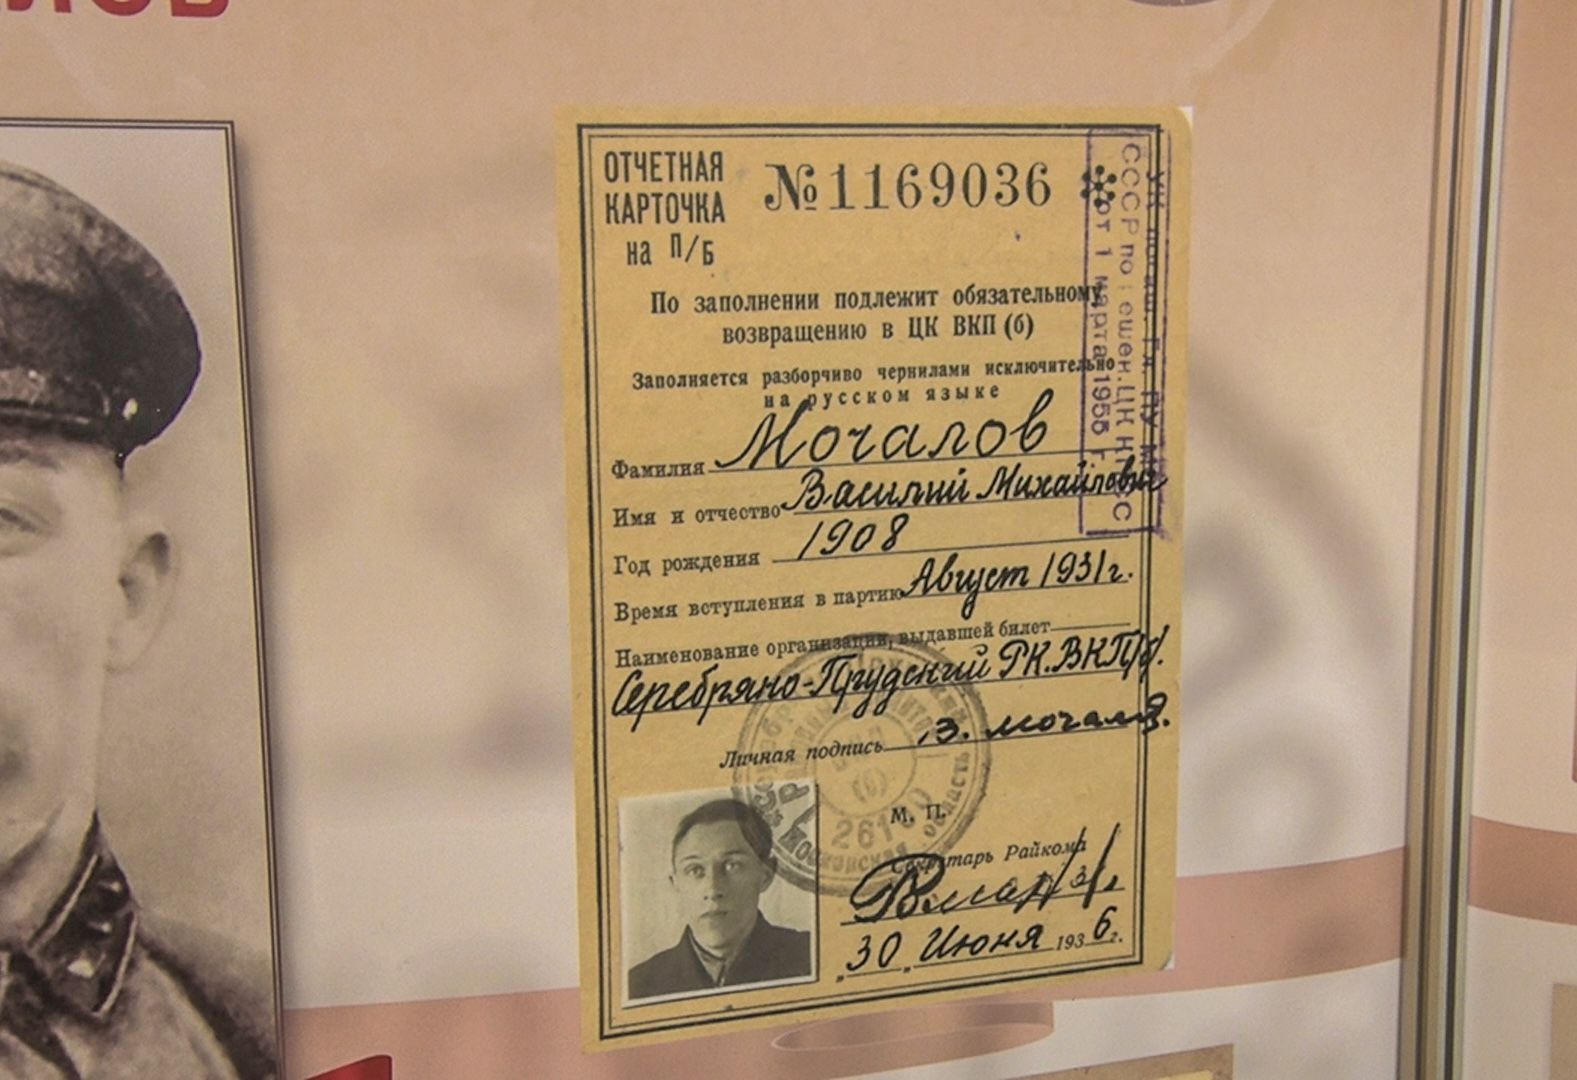 ОТЧЕТНАЯ
КАРТОЧКА
на П/Б
№1169036
По заполнении подлежит обязательному
возвращению в ЦК ВКП (б)
Заполняется разборчиво чернилами исключительно
на русском языке
Фамилия Мочалов
Имя и отчество Василий Михайлович
Год рождения 1908
Время вступления в партию Август 1931 г.
Наименование организации, выдавшей билет
Серебряно-Прудский РК.ВКП/б/.
Личная подпись В. Мочалов.
М. П.
Секретарь Райкома
„30„ Июня 1936 г.
СССР по ЦК КПСС
от 1 марта 1955 г
Московская область